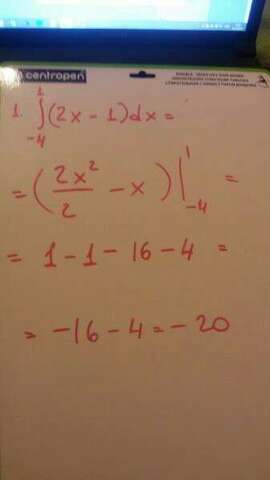 centropen
1. ∫₋₄¹ (2x - 1)dx =
= (2x²/2 - x) |₋₄¹ =
= 1 - 1 - 16 - 4 =
= -16 - 4 = -20